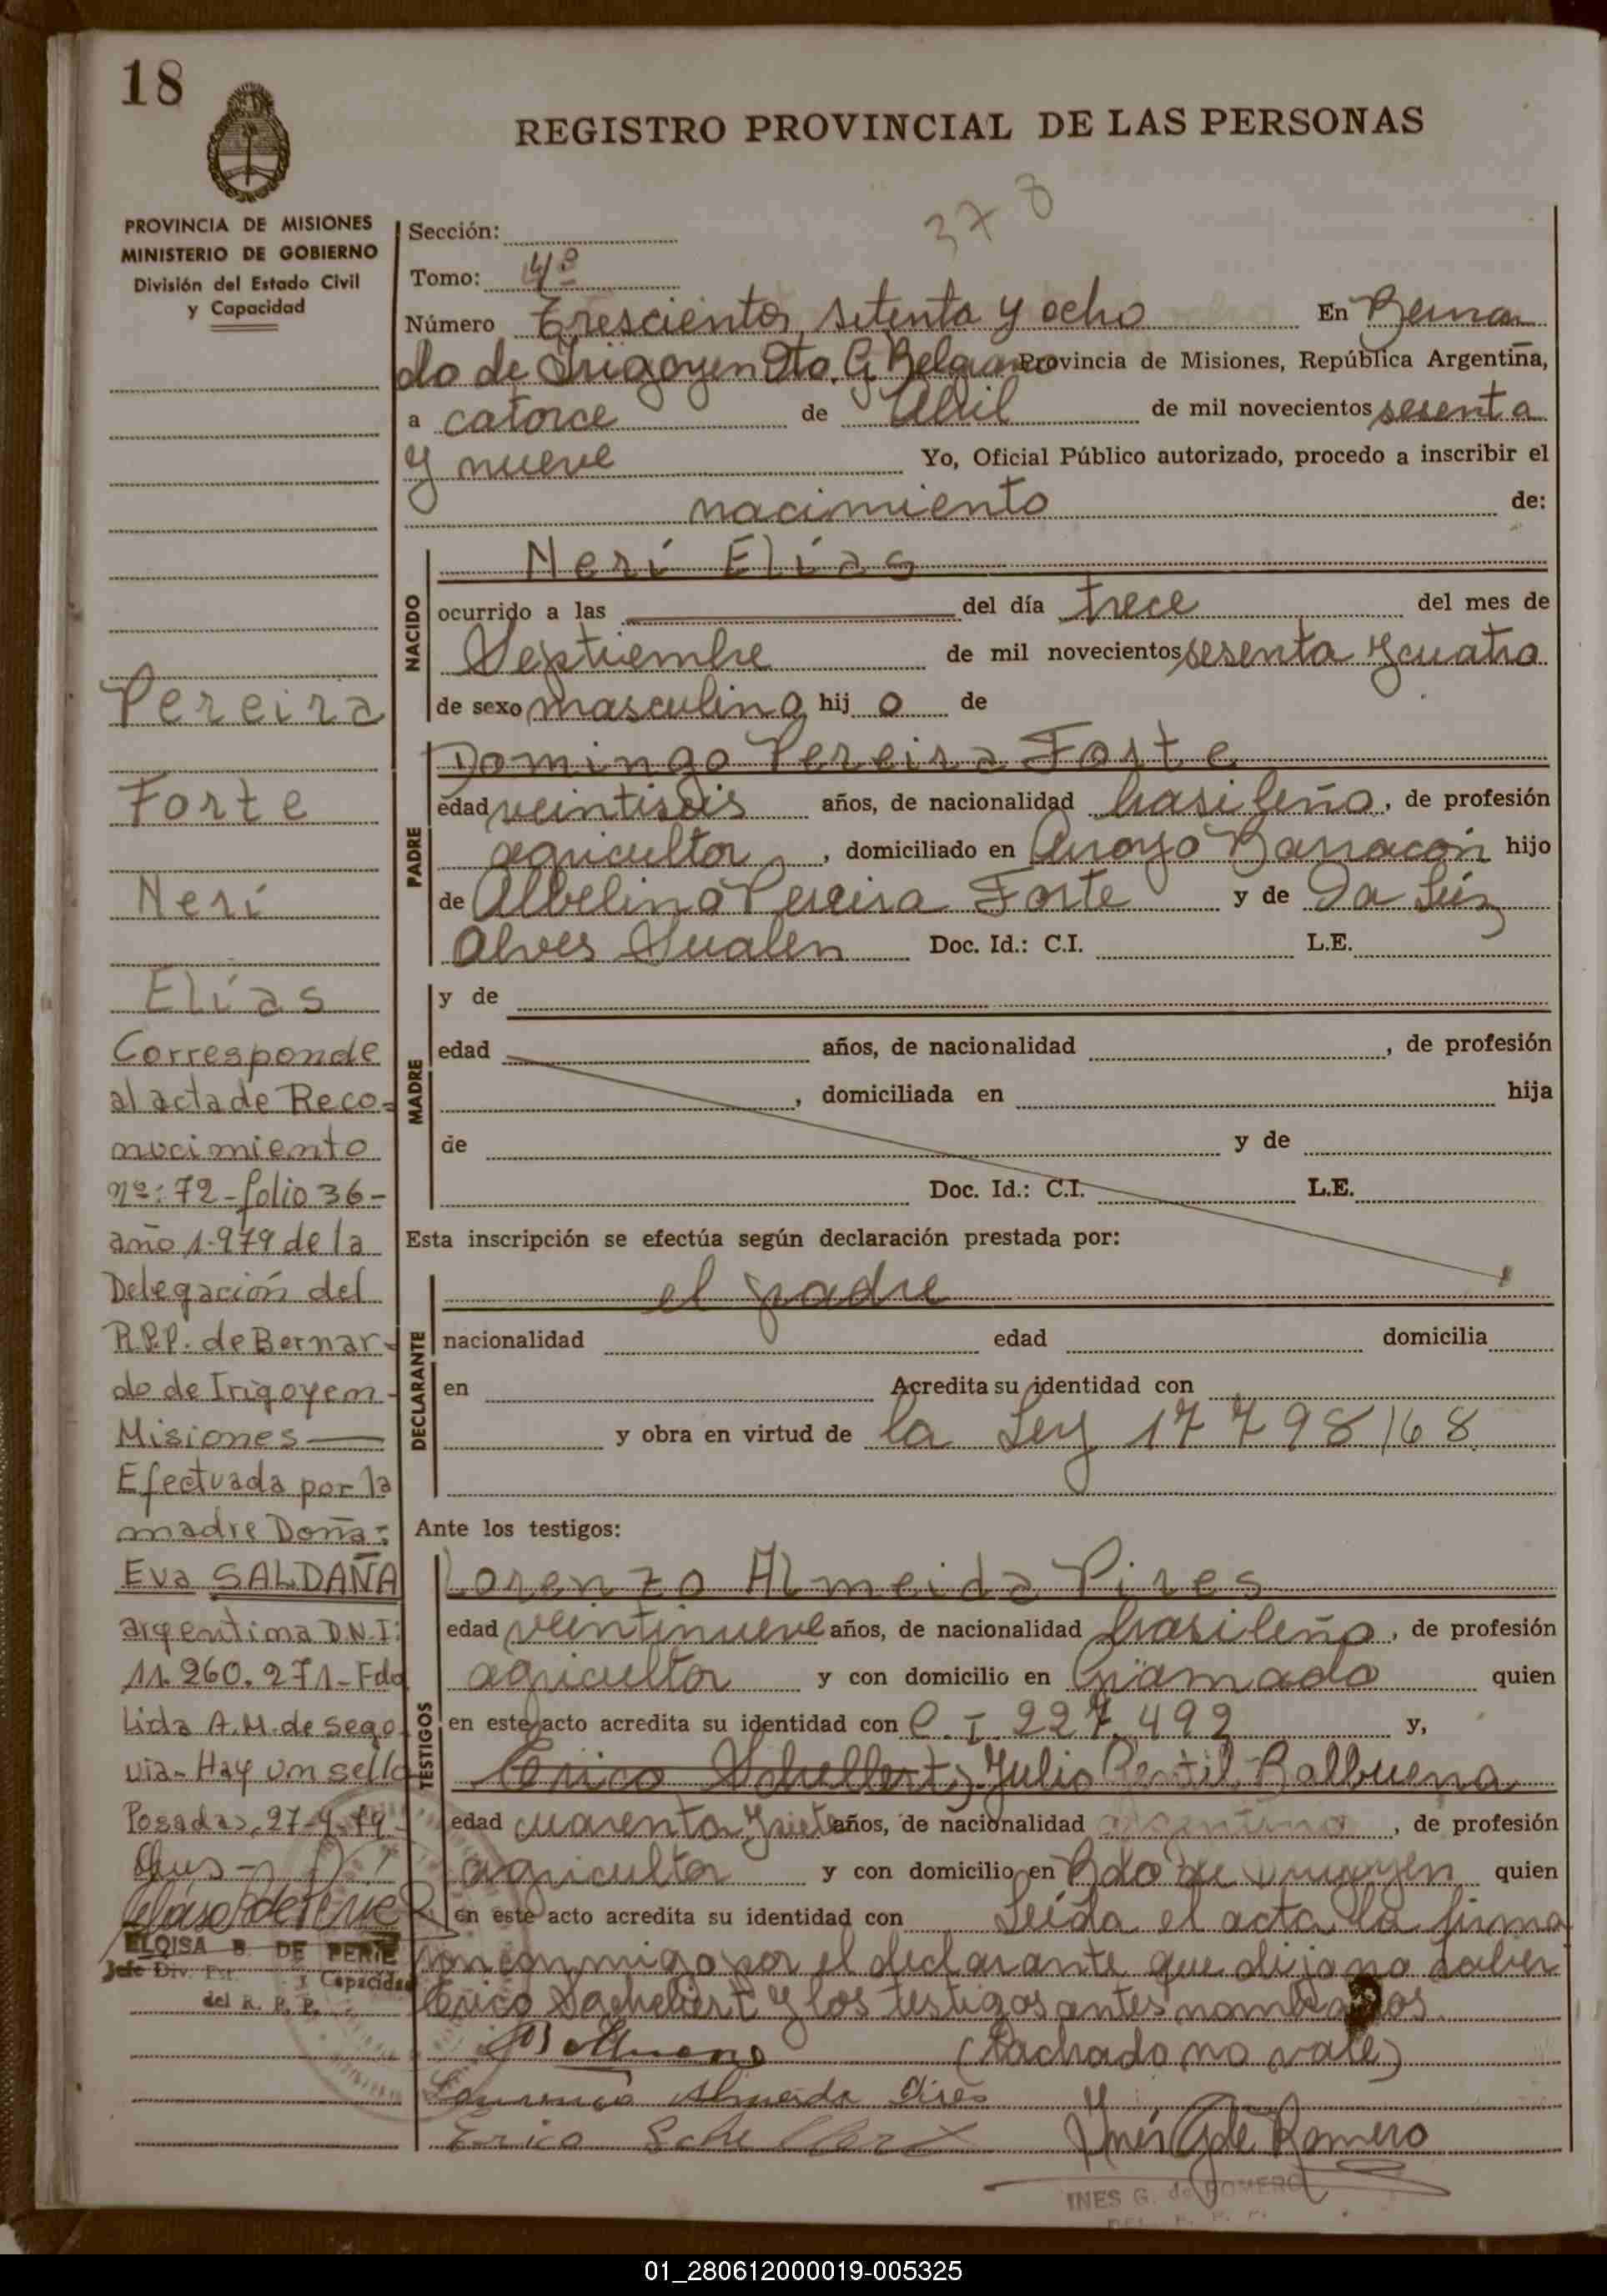 18
REGISTRO PROVINCIAL DE LAS PERSONAS
378
PROVINCIA DE MISIONES
MINISTERIO DE GOBIERNO
División del Estado Civil
y Capacidad
Sección:
Tomo: 4º
Número Trescientos setenta y ocho En Bernar
do de Irigoyen Dto. G. Belgrano Provincia de Misiones, República Argentina,
a catorce de Abril de mil novecientos sesenta
y nueve Yo, Oficial Público autorizado, procedo a inscribir el
nacimiento de:
NACIDO
Neri Elías
ocurrido a las del día trece del mes de
Septiembre de mil novecientos sesenta y cuatro
de sexo masculino hij o de
PADRE
Domingo Pereira Forte
edad veintiseis años, de nacionalidad brasileño, de profesión
agricultor, domiciliado en Arroyo Barracón hijo
de Albelino Pereira Forte y de Da Luz
Alves Doc. Id.: C.I. L.E.
MADRE
y de
edad años, de nacionalidad , de profesión
, domiciliada en hija
de y de
Doc. Id.: C.I. L.E.
Esta inscripción se efectúa según declaración prestada por:
DECLARANTE
el padre
nacionalidad edad domicilia
en Acredita su identidad con
y obra en virtud de la Ley 17798/68
Ante los testigos:
TESTIGOS
Lorenzo Almeida Pires
edad veintinueve años, de nacionalidad brasileño, de profesión
agricultor y con domicilio en Gramado quien
en este acto acredita su identidad con C.I. 227.492 y,
Erico Schellert, Julio Balbuena
edad cuarenta y siete años, de nacionalidad argentino, de profesión
agricultor y con domicilio en Bdo de Irigoyen quien
en este acto acredita su identidad con Leída el acta la firma
con conmigo por el declarante que dijo no saber
Erico Schellert y los testigos antes nombrados.
(Tachado no vale)
Lourenço Almeida Pires
Erico Schellert Inés G de Romero
INES G. de ROMERO
DEL. R. P. P.
Pereira
Forte
Neri
Elías
Corresponde
al acta de Reco-
nocimiento
nº: 72-folio 36-
año 1.979 de la
Delegación del
R.P.P. de Bernar-
do de Irigoyen-
Misiones
Efectuada por la
madre Doña:
Eva SALDAÑA
argentina D.N.I:
11.260.271-Fdo
Lida A.M. de Sego
via-Hay un sello
Posadas, 27-9-79-
ELOISA B. DE PERIE
Jefe Div. Est. y Capacidad
del R. P. P.
01_280612000019-005325